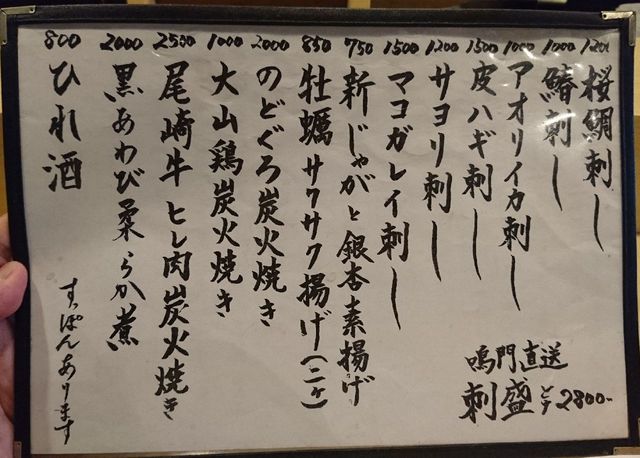 桜鯛刺し 1200
鰆刺し 1000
アオリイカ刺し 1000
皮ハギ刺し 1500
サヨリ刺し 1200
マコガレイ刺し 1500
新じゃがと銀杏素揚げ 750
牡蠣サクサク揚げ(二ヶ) 850
のどぐろ炭火焼き 2000
大山鶏炭火焼き 1000
尾崎牛ヒレ肉炭火焼き 2500
黒あわび柔らか煮 2000
ひれ酒 800
鳴門直送
刺盛 2800-
すっぽんあります